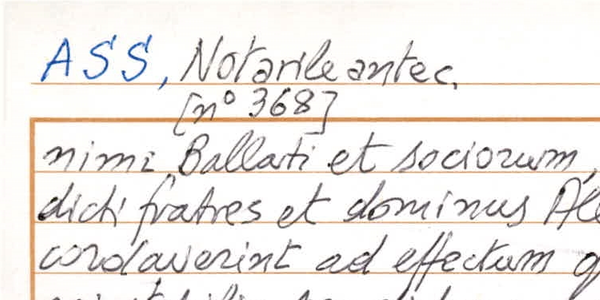 ASS, Notarile antec.
[n° 368]
nimi Ballati et sociorum,
dicti fratres et dominus Ale
cordaverint ad effectum q